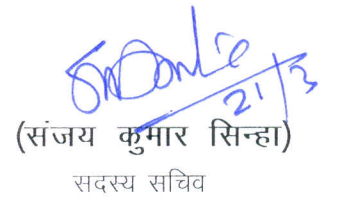 21/3
(संजय कुमार सिन्हा)
सदस्य सचिव